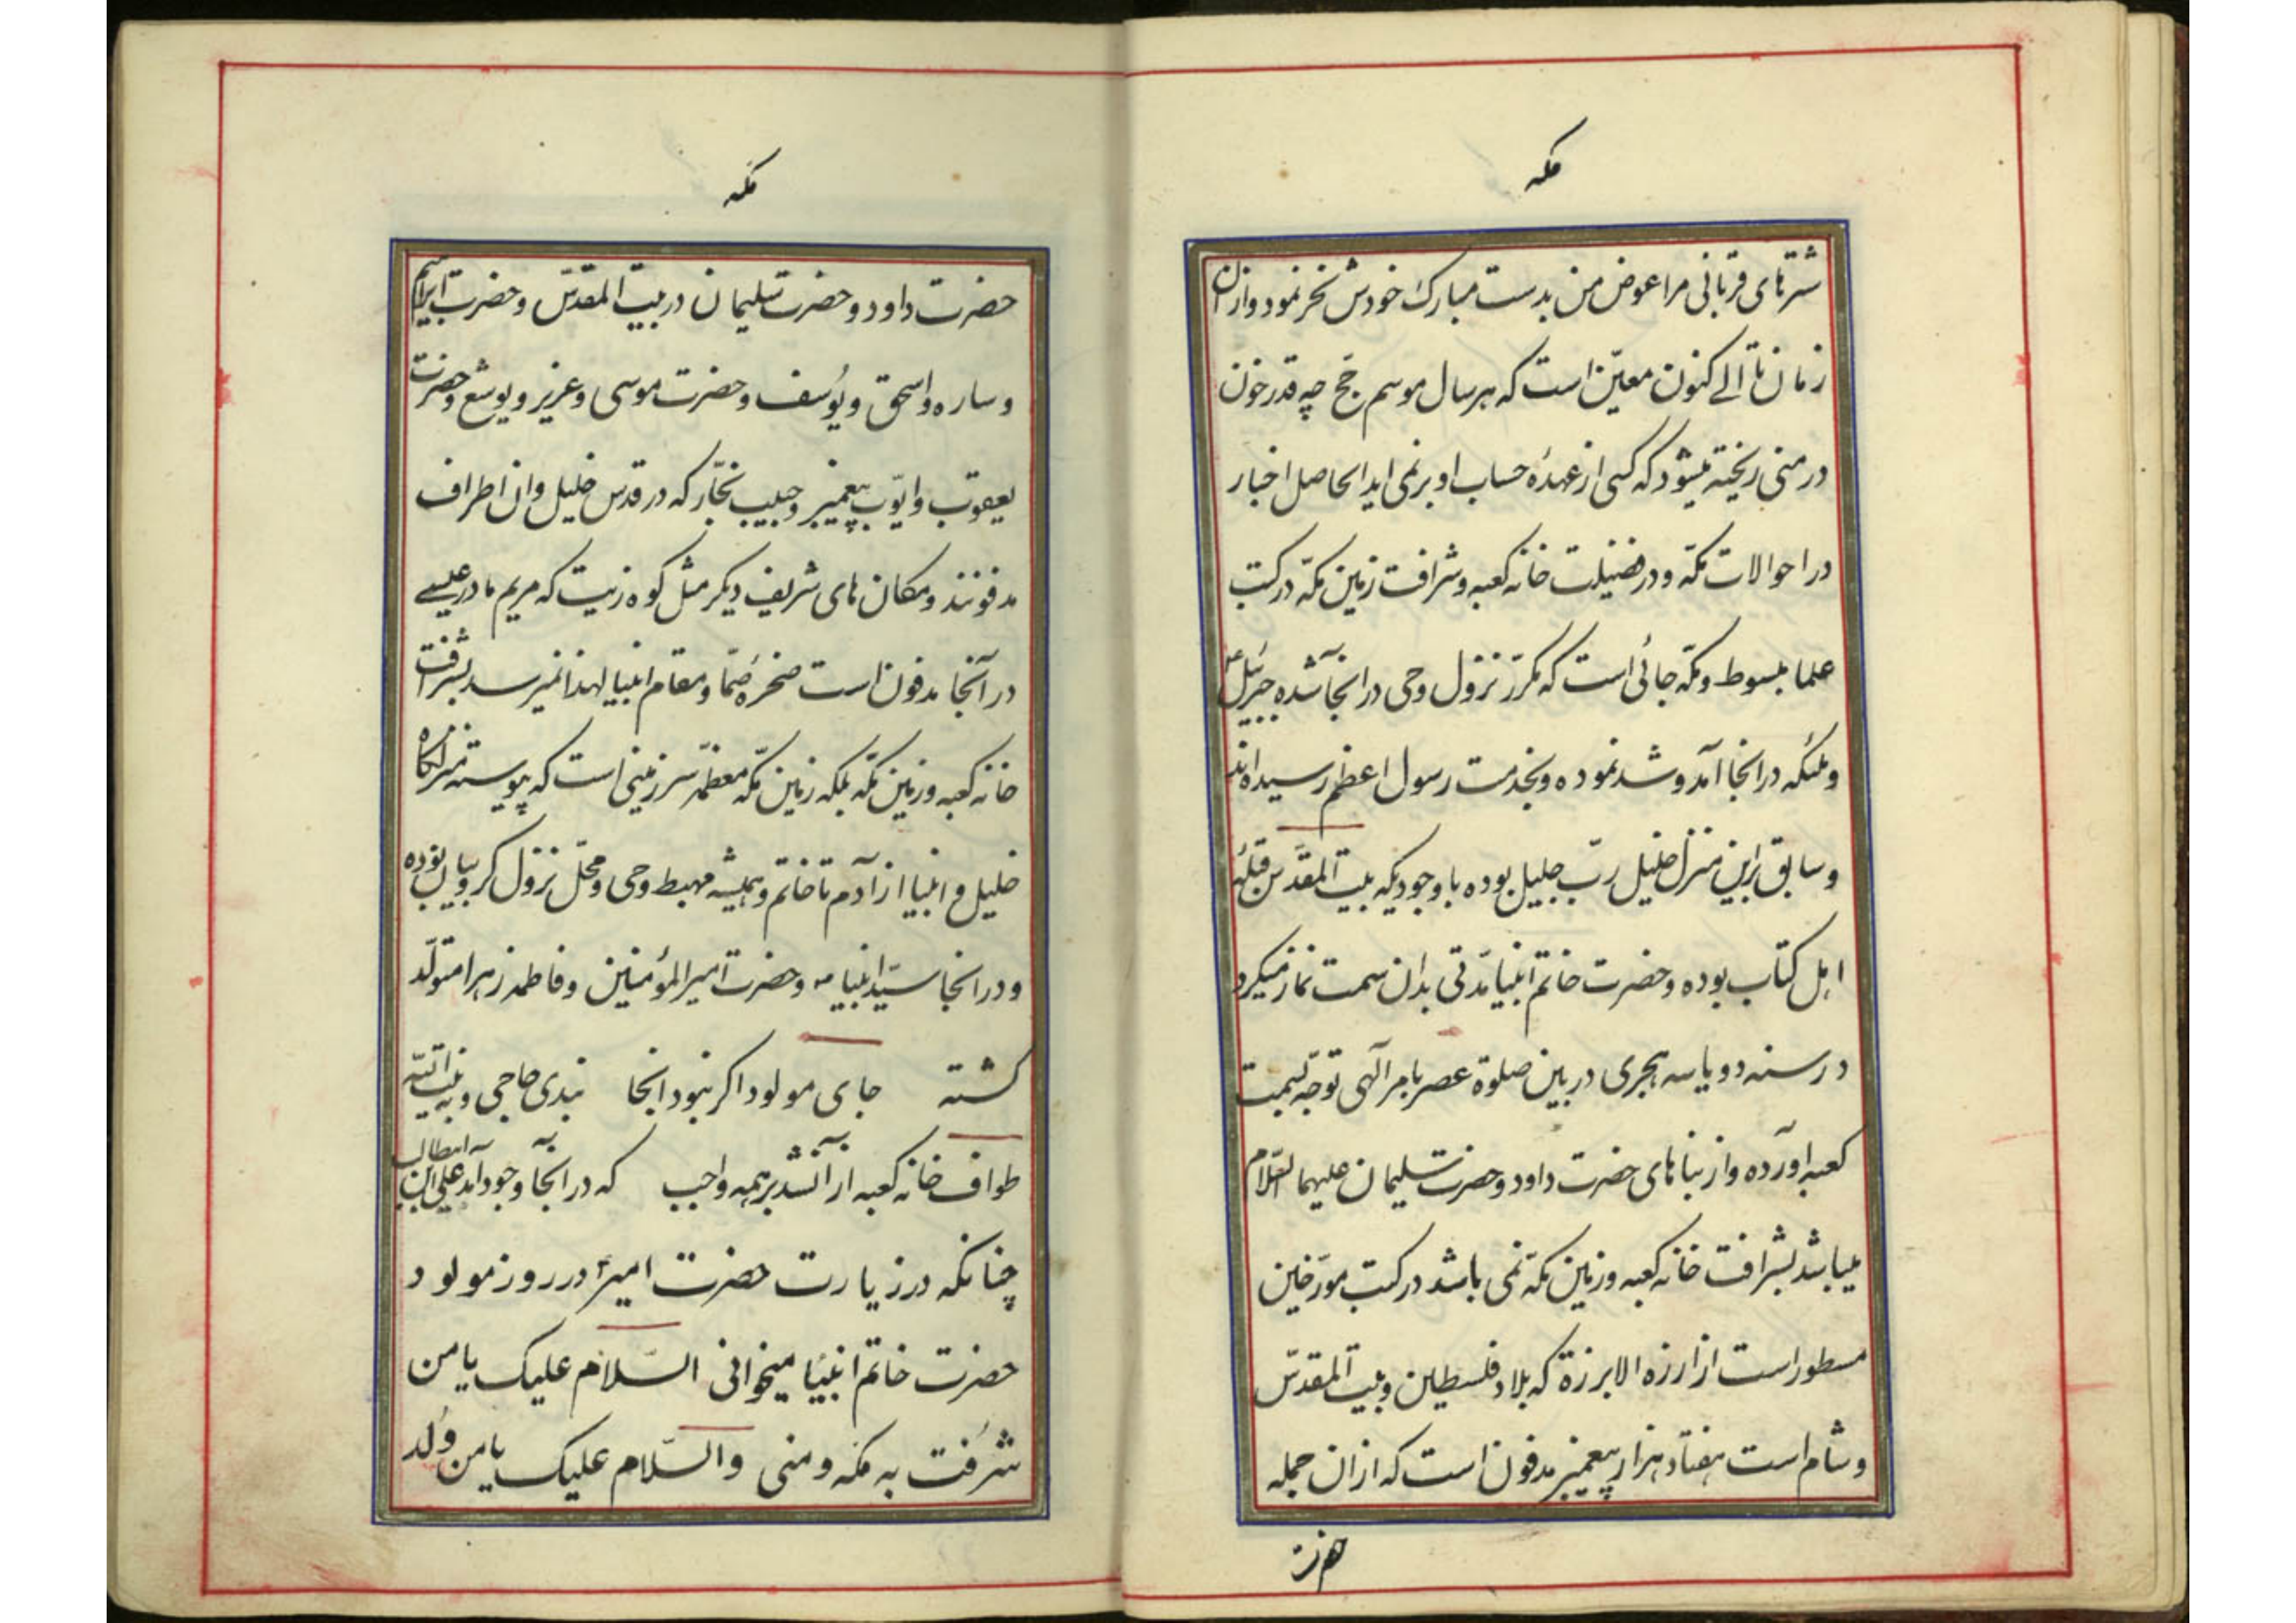 مکه
شترهای قربانی مرا عوض من بدست مبارک خودش نحر نمود و از ان
زمان تا الے کنون معین است که هر سال موسم حج چه قدر خون
در منی ریخته میشود که کسی از عهدهٔ حساب او بر نمی اید الحاصل اخبار
در احوالات مکّه و در فضیلت خانه کعبه و شرافت زمین مکّه در کتب
علما مبسوط و مکّه جائی است که مکرّر نزول وحی در انجا شده جبرئیل
و ملئکه در انجا آمد و شد نموده و بخدمت رسول اعظم رسیده اند
و سابق براین منزل خلیل ربّ جلیل بوده با وجودیکه بیت المقدّس قبلهٔ
اهل کتاب بوده و حضرت خاتم انبیا مدّتی بدان سمت نماز میکرد
در سنه دو یا سه هجری در بین صلوة عصر بامر آلهی توجّه بسمت
کعبه اورده و از بناهای حضرت داود و حضرت سلیمان علیهما السّلام
میباشد بشرافت خانه کعبه و زمین مکّه نمی باشد در کتب مورّخین
مسطور است از ارزه الا برزة که بلاد فلسطین و بیت المقدّس
و شام است هفتاد هزار پیغمبر مدفون است که از ان جمله
حضرت
مکه
حضرت داود و حضرت سلیمان در بیت المقدّس و حضرت ابراهیم
و ساره و اسحق و یوُسف و حضرت موسی و عزیر و یوشع و حضرت
یعقوب و ایّوب پیغمبر و حبیب نجّار که در قدس خلیل و ان اطراف
مدفونند و مکان های شریف دیکر مثل کوه زیت که مریم مادر عیسے
در آنجا مدفون است صخرهٔ صمّا و مقام انبیا لهذا نمیرسد بشرافت
خانه کعبه و زمین مکّه بلکه زمین مکّه معظّمه سر زمینی است که پیوسته منزلکاه
خلیل و انبیا از آدم تا خاتم و همیشه مهبط وحی و محلّ نزول کروبیان بوده
و در انجا سیّد انبیا ص و حضرت امیر المؤمنین و فاطمه زهرا متولّد
کشته جای مولود اکر نبود انجا نبدی حاجی و نه بیت اللّه
طواف خانه کعبه از آن شد بر همه واجب که در انجا بوجود آمد علی ابن ابیطالب
چنانکه در زیارت حضرت امیر ع در روز مولود
حضرت خاتم انبیا میخوانی السّلام علیک یا من
شَرُفت به مکه و منی والسّلام علیک یا من وُلد